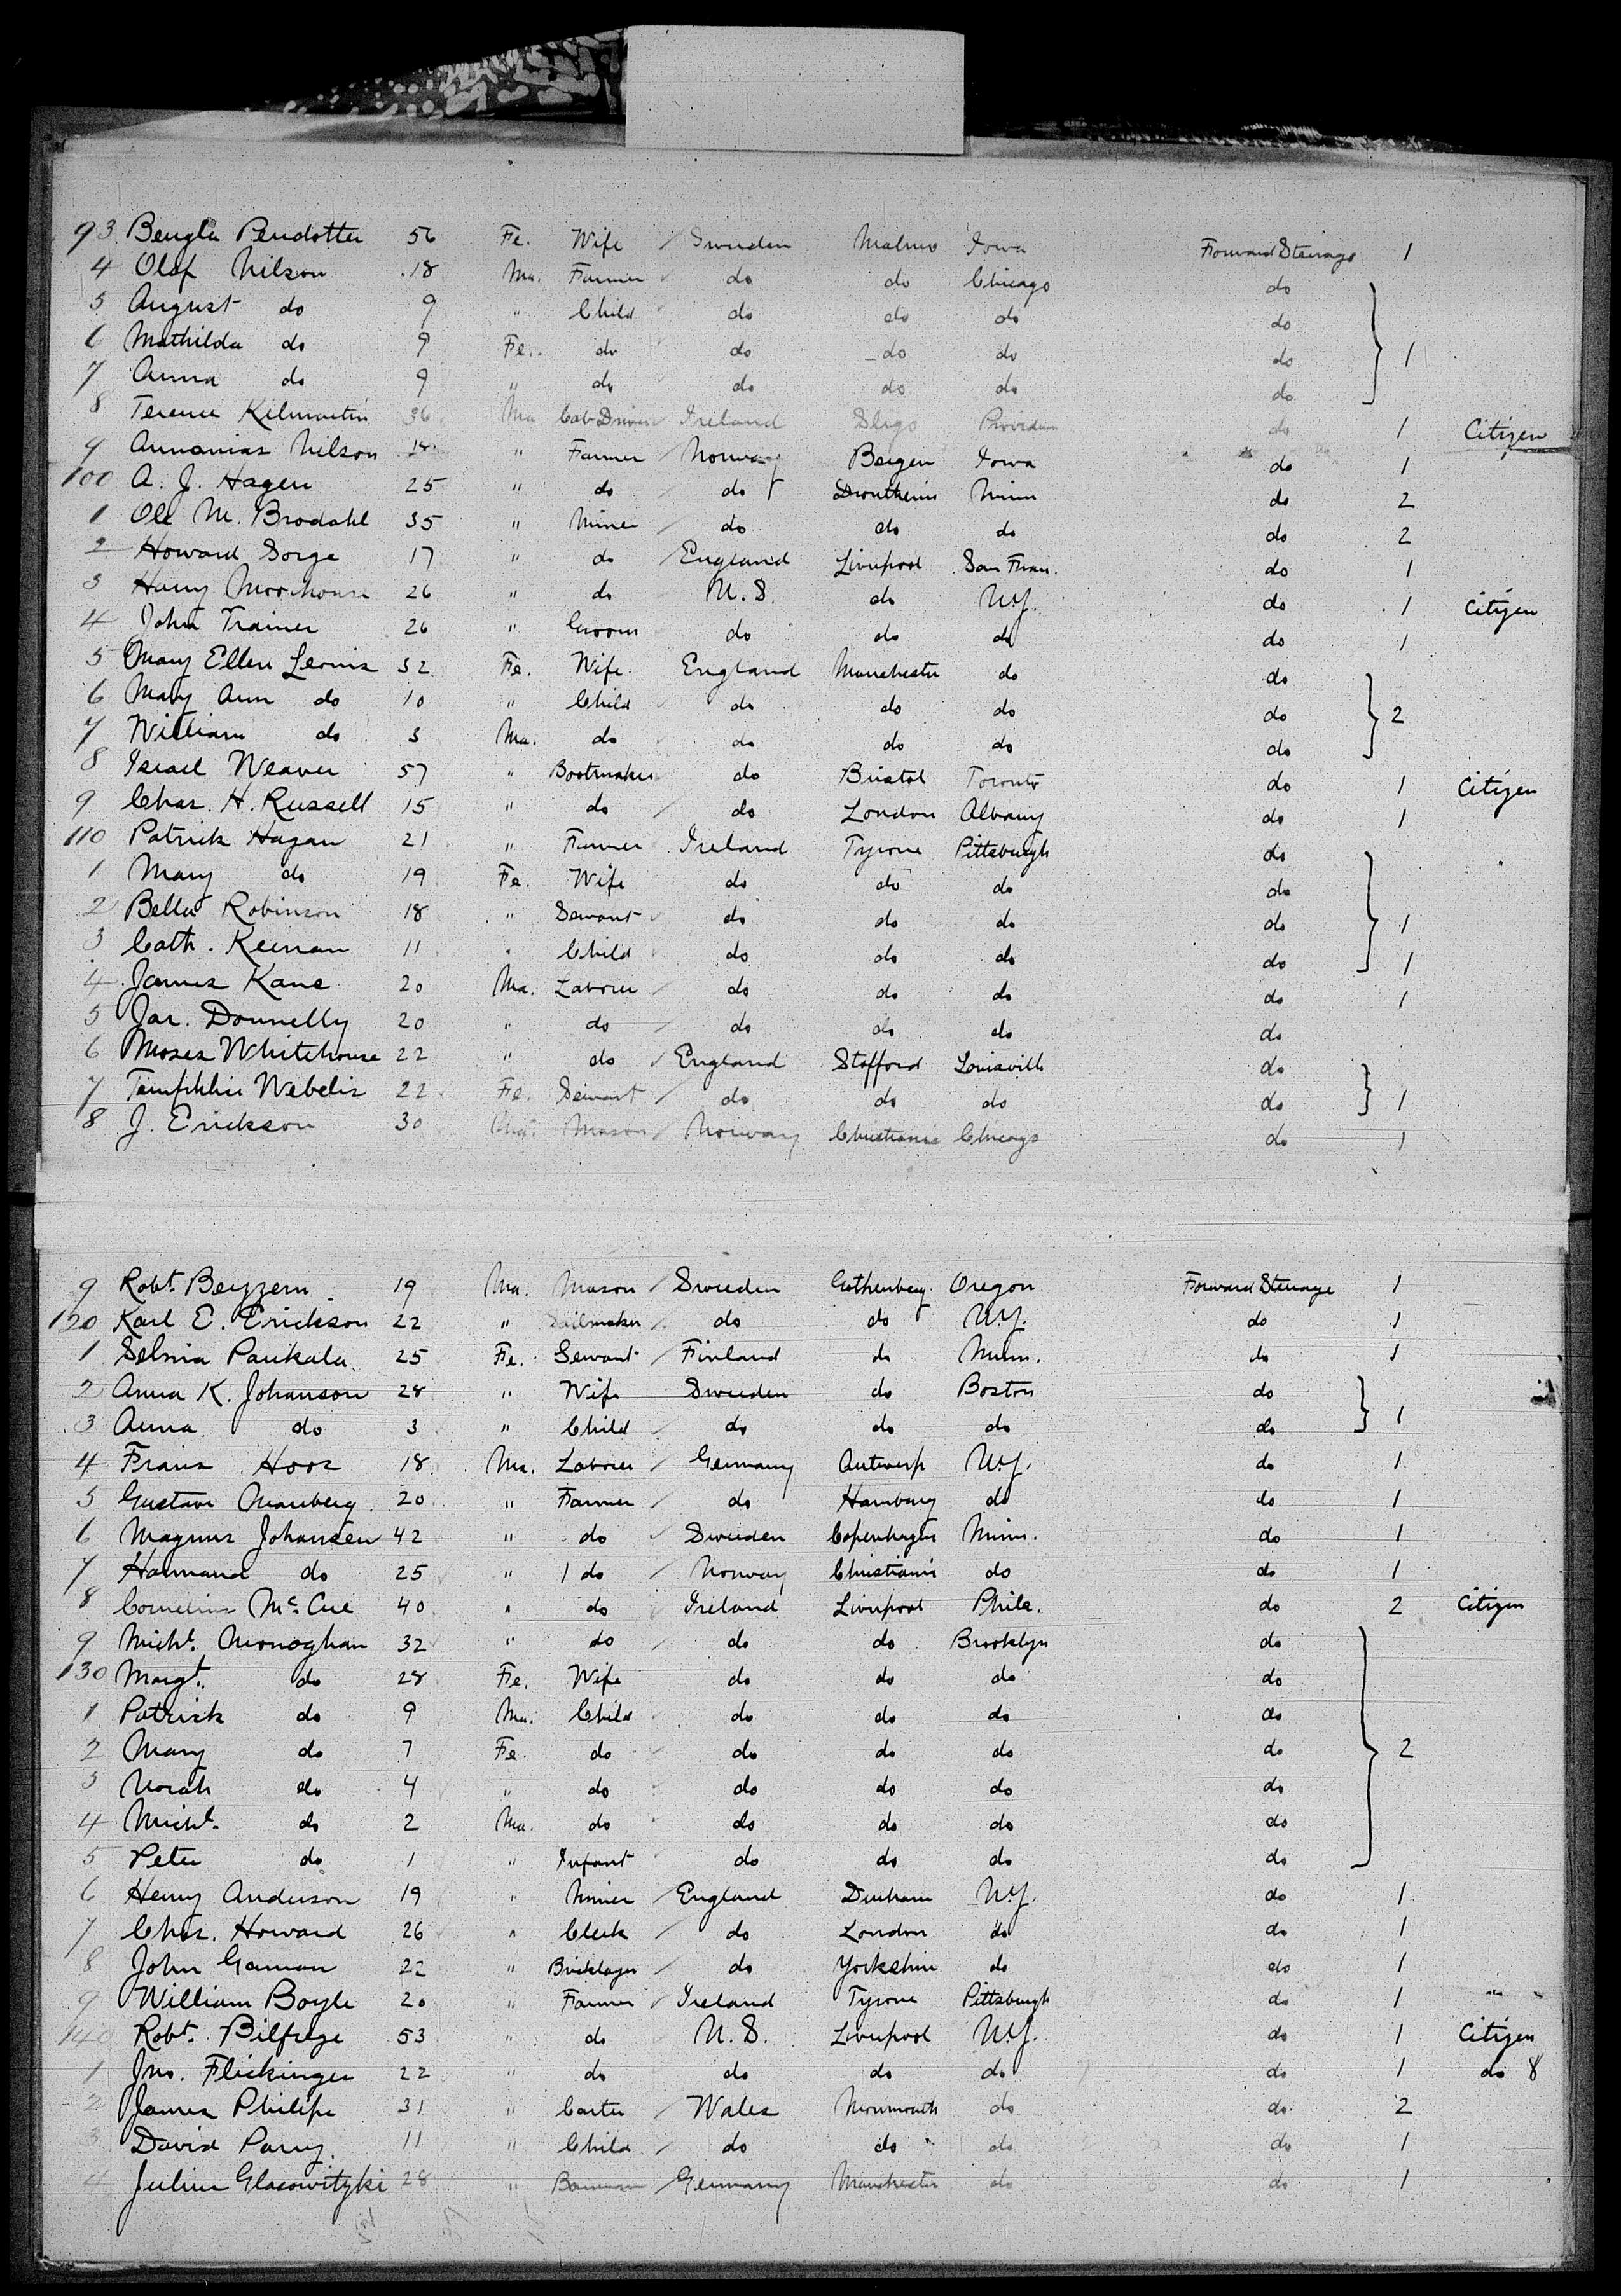 93 Bengta Pendotter 56 Fe. Wife Sweden Malmo Iowa Forward Steerage 1
4 Olof Nilson 18 Ma. Farmer do do Chicago do
5 August do 9 " Child do do do do
6 Mathilda do 9 Fe. do do do do do 1
7 Anna do 9 " do do do do do
8 Terence Kilmartin 36 Ma Cab Driver Ireland Sligo Providen do 1 Citizen
9 Annanias Nilson 18 " Farmer Norway Bergen Iowa do 1
100 A. J. Hagen 25 " do do Drontheim Minn do 2
1 Ole M. Brodahl 35 " Miner do do do do 2
2 Howard Sorge 17 " do England Liverpool San Fran. do 1
3 Harry Moorhouse 26 " do U.S. do N.Y. do 1 Citizen
4 John Trainer 26 " Groom do do do do 1
5 Mary Ellen Lewis 32 Fe. Wife England Manchester do do
6 Mary Ann do 10 " Child do do do do 2
7 William do 3 Ma. do do do do do
8 Israel Weaver 57 " Bootmaker do Bristol Toronto do 1 Citizen
9 Chas. H. Russell 15 " do do London Albany do 1
110 Patrick Hagan 21 " Farmer Ireland Tyrone Pittsburgh do
1 Mary do 19 Fe. Wife do do do do
2 Bella Robinson 18 " Servant do do do do 1
3 Cath. Keenan 11 " Child do do do do 1
4 James Kane 20 Ma. Laborer do do do do 1
5 Jas. Donnelly 20 " do do do do do
6 Moses Whitehouse 22 " do England Stafford Louisville do
7 Webelis 22 Fe. Servant do do do do 1
8 J. Erickson 30 Mason Norway Christiania Chicago do 1
9 Robt. Beyzern 19 Ma. Mason Sweden Gothenberg Oregon Forward Steerage 1
120 Karl E. Erickson 22 " Sailmaker do do N.Y. do 1
1 Selma Paukala 25 Fe. Servant Finland do Minn. do 1
2 Anna K. Johanson 28 " Wife Sweden do Boston do
3 Anna do 3 " Child do do do do 1
4 Franz Hoos 18 Ma. Laborer Germany Antwerp N.Y. do 1
5 Gustave Manberg 20 " Farmer do Hamburg do do 1
6 Magnus Johansen 42 " do Sweden Copenhagen Minn. do 1
7 do 25 " 1 do Norway Christiania do do 1
8 Cornelius McCue 40 " do Ireland Liverpool Phila. do 2 Citizen
9 Michl. Monoghan 32 " do do do Brooklyn do
130 Margt. do 28 Fe. Wife do do do do
1 Patrick do 9 Ma. Child do do do do
2 Mary do 7 Fe. do do do do do 2
3 Norah do 4 " do do do do do
4 Michl. do 2 Ma. do do do do do
5 Peter do 1 " Infant do do do do
6 Henry Anderson 19 " Miner England Durham N.Y. do 1
7 Chas. Howard 26 " Clerk do London do do 1
8 John Gaman 22 " Bricklayer do Yorkshire do do 1
9 William Boyle 20 " Farmer Ireland Tyrone Pittsburgh do 1
140 Robt. Bilfelge 53 " do U.S. Liverpool N.Y. do 1 Citizen
1 Jno. Flickinger 22 " do do do do do 1 do 8
2 James Philips 31 " Carter Wales Monmouth do do 2
3 David Parry 11 " Child do do do do 1
4 Julius Glasowitzki 28 " Germany Manchester do do 1